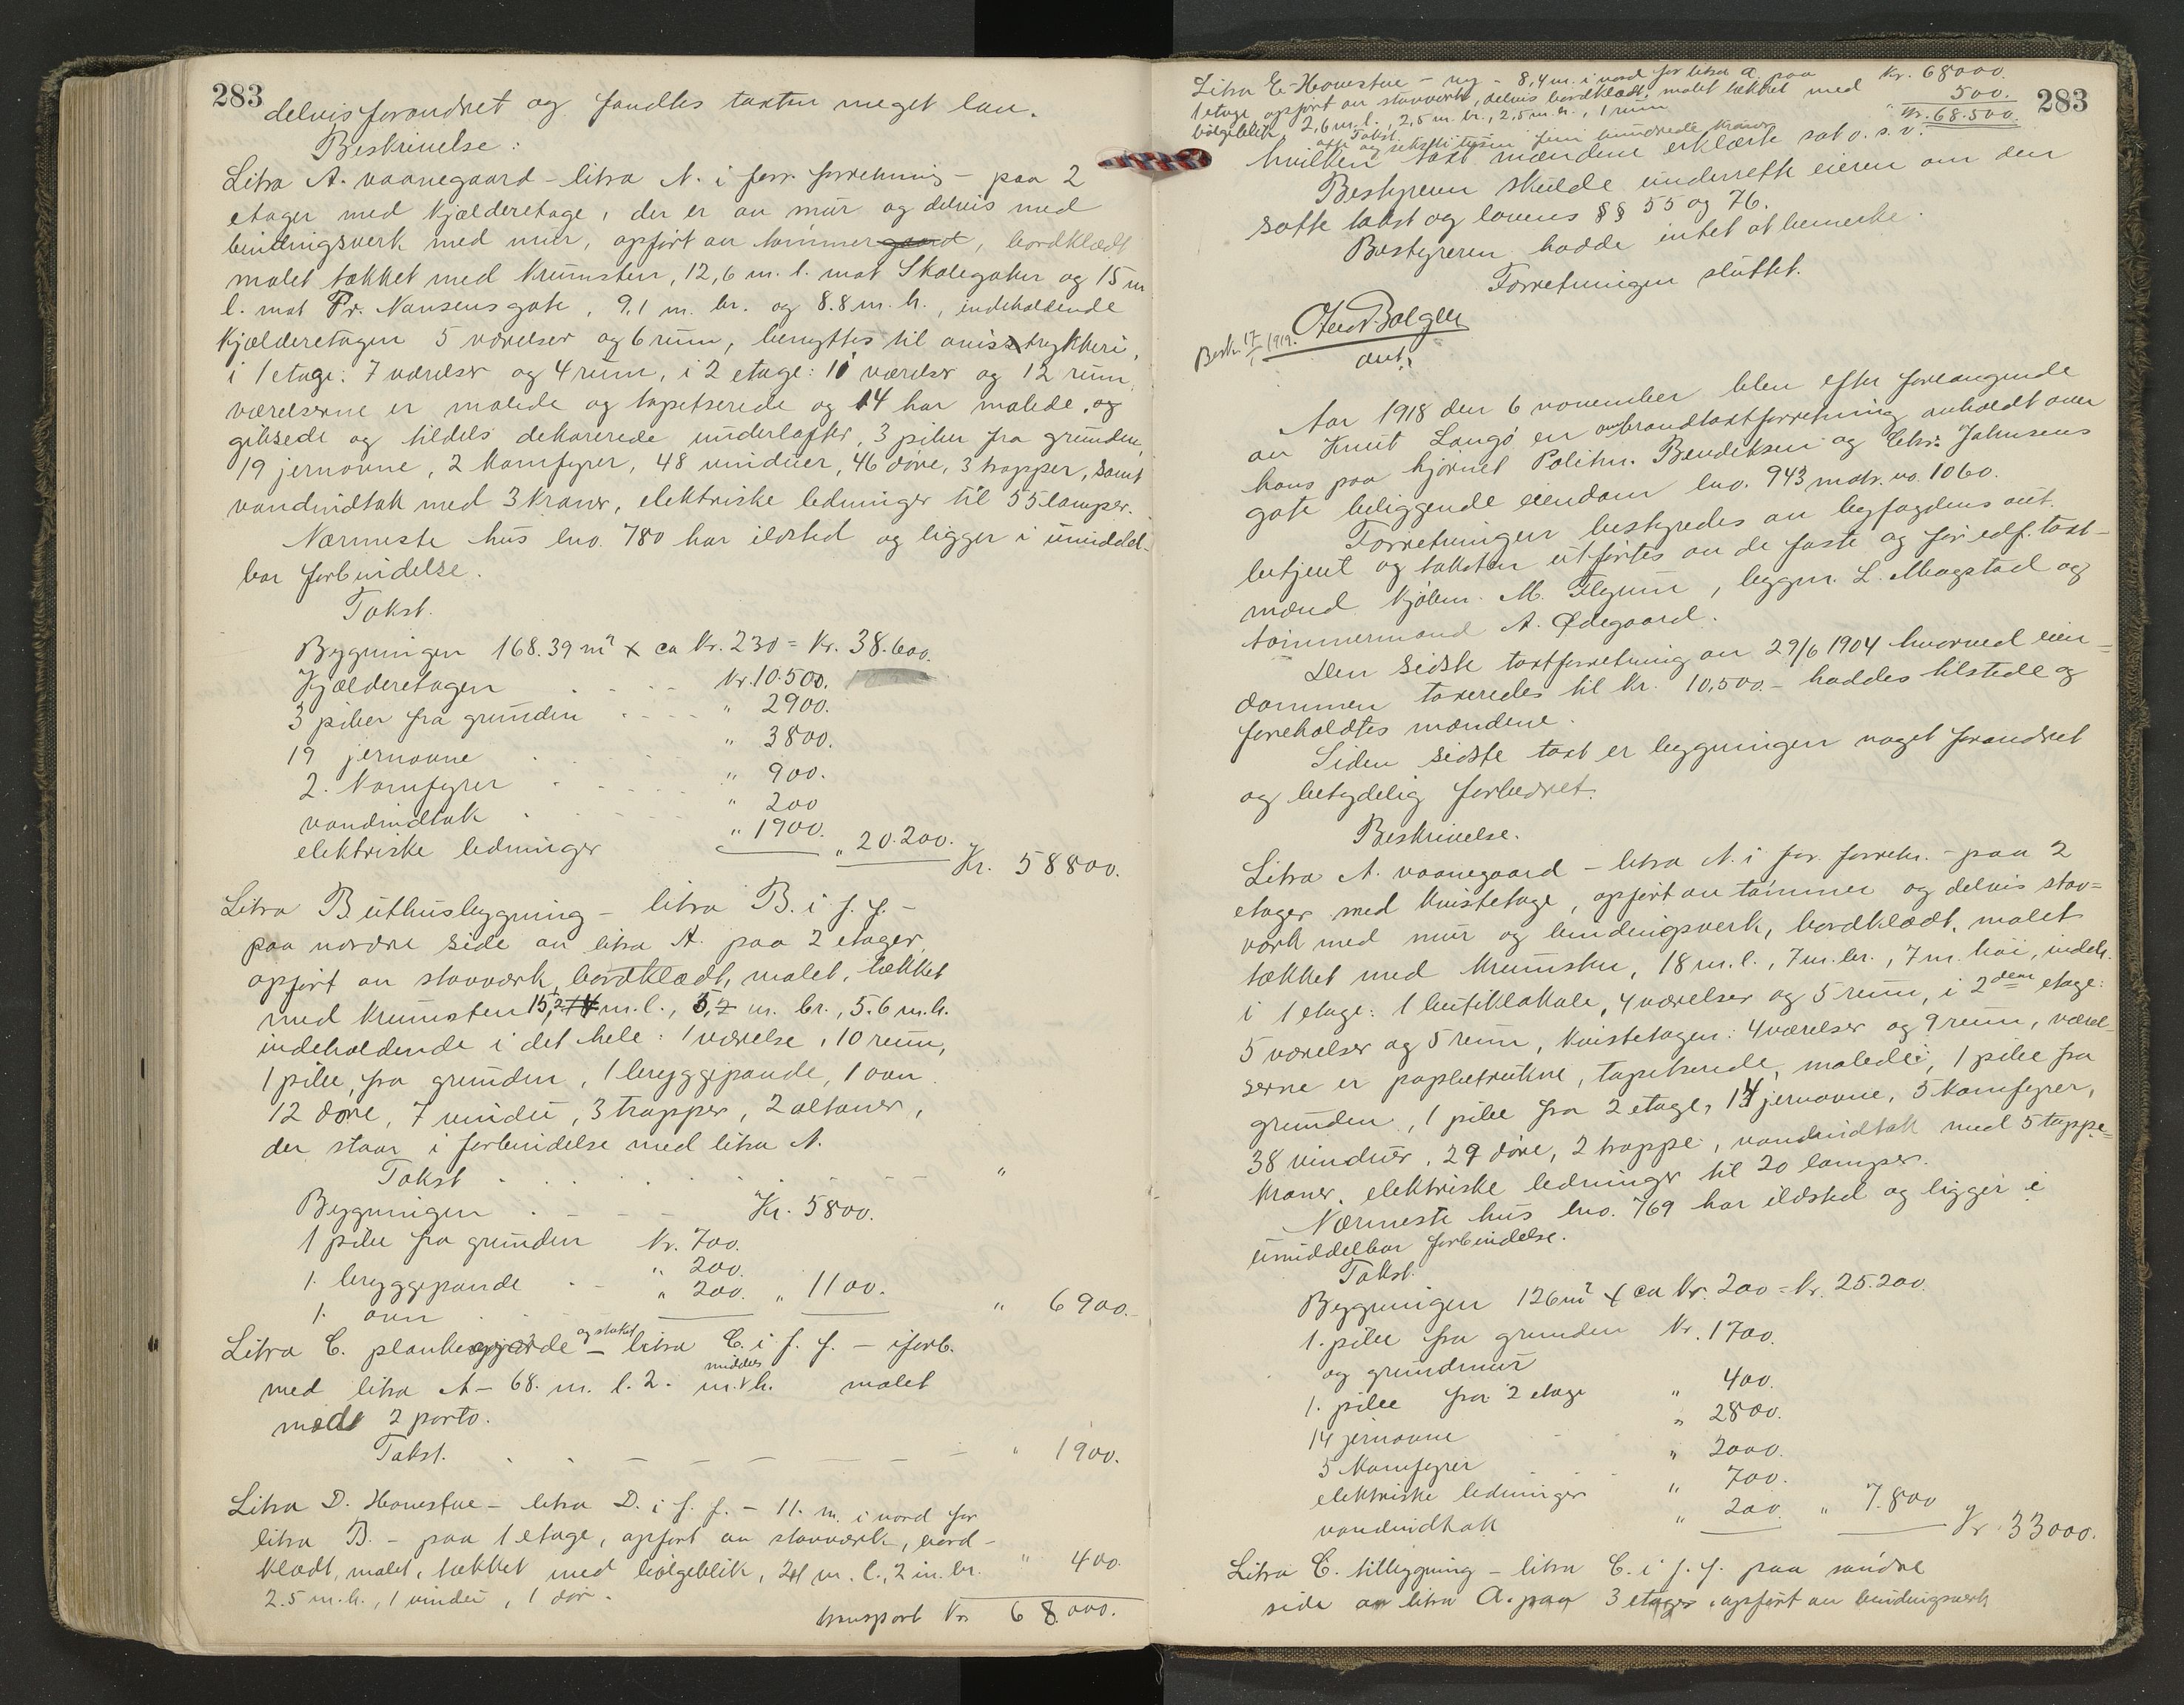 283
delvis forandret og fandtes taxten meget lav.
Beskrivelse:
Litra A. vaanegaard - litra A. i forr. forretning - paa 2
etager med kjælderetage, der er av mur og delvis med
bindingsverk med mur, opført av tømmer, bordklædt
malet tækket med krumsten, 12,6 m. l. mot Skolegaten og 15 m
l. mot Fr. Nansens gate, 9,1 m. br. og 8.8 m. h., indeholdende
kjælderetagen 5 værelser og 6 rum, benyttes til avistrykkeri,
i 1 etage: 7 værelser og 4 rum, i 2 etage: 11 værelser og 12 rum,
værelserne er malede og tapetserede og 14 har malede og
gibsede og tildels dekorerede underlofter, 3 piber fra grunden,
19 jernovne, 2 komfyrer, 48 vinduer, 46 døre, 3 trapper, samt
vandindtak med 3 kraner, elektriske ledninger til 55 lamper.
Nærmeste hus lno. 780 har ildsted og ligger i umiddel-
bar forbindelse.
Takst.
Bygningen 168.39 m² x ca kr. 230 = kr. 38.600.
Kjælderetagen kr. 10.500.
3 piber fra grunden " 2900.
19 jernovne " 3800.
2. komfyrer " 900.
vandindtak " 200
elektriske ledninger " 1900. " 20.200. Kr. 58800.
Litra B uthusbygning - litra B. i f. f. -
paa nordre side av litra A. paa 2 etager,
opført av stavværk, bordklædt, malet, tækket
med krumsten 15,2 m. l., 5,2 m. br., 5.6 m. h.
indeholdende i det hele: 1 værelse, 10 rum,
1 pibe fra grunden, 1 bryggepande, 1 ovn
12 døre, 7 vindu, 3 trapper, 2 altaner,
der staar i forbindelse med litra A.
Takst "
Bygningen Kr. 5800.
1 pibe fra grunden kr. 700.
1. bryggepande " 200.
1. ovn " 200. " 1100. " 6900.-
Litra C. plankegjærde og stakit - litra C. i f. f. - iforb.
med litra A - 68. m. l. 2. m. middels h. malet
med 2 porto.
Takst. " 1900.
Litra D. Havestue - litra D. i f. f. - 11. m. i nord for
litra B. - paa 1 etage, opført av stavværk, bord-
klædt, malet, tækket med bølgeblik, 2,1 m. l., 2 m. br. " 400.
2.5 m. h., 1 vindu, 1 dør.
transport kr. 68.000.
Litra E. Havestue - ny - 8,4 m. i nord for litra A. paa Kr. 68000.
1 etage opført av stavverk, delvis bordklædt, malet tækket med 500.
bølgeblik, 2,6 m. l., 2,5 m. br., 2,5 m. h., 1 rum kr. 68.500.
283
Takst.
otte og seksti tusen fem hundrede kroner
hvilken taxt mændene erklærte sat o. s. v.
Bestyreren skulde underrette eieren om den
satte takst og lovens §§ 55 og 76.
Bestyreren hadde intet at bemerke.
Forretningen sluttet.
Beskr. 17/1 1919.
aut.
Aar 1918 den 6 november blev efter forlangende
av Knut Langø en ombrandtaxtforretning avholdt over
hans paa hjørnet Politim. Bendiksen og Chr. Johnsens
gate beliggende eiendom lno. 943 matr. no. 1060.
Forretningen bestyredes av byfogdens aut.
betjent og taksten utførtes av de faste og før edf. taxt-
mænd kjøbm. M. Flyum, byggm. L. Magstad og
tømmermand A. Ødegaard.
Den sidste taxtforretning av 29/6 1904 hvorved eien-
dommen taxeredes til kr. 10,500.- haddes tilstede og
foreholdtes mændene.
Siden sidste taxt er bygningen noget forandret
og betydelig forbedret.
Beskrivelse.
Litra A. vaanegaard - litra A. i for. forretn. - paa 2
etager med kvistetage, opført av tømmer og delvis stav=
værk med mur og bindingsverk, bordklædt, malet
tækket med krumsten, 18 m. l., 7 m. br., 7 m. høi, indeh.
i 1 etage: 1 butiklokale, 4 værelser og 5 rum, i 2den etage:
5 værelser og 5 rum, kvistetagen: 4 værelser og 9 rum, værel-
serne er papbetrukne, tapetserede, malede, 1 pibe fra
grunden, 1 pibe fra 2 etage, 14 jernovne, 5 komfyrer,
38 vinduer, 29 døre, 2 trappe, vandindtak med 5 tappe=
kraner, elektriske ledninger til 20 lamper.
Nærmeste hus lno. 769 har ildsted og ligger i
umiddelbar forbindelse.
Takst.
Bygningen 126 m² x ca kr. 200 = kr. 25.200.
1. pibe fra grunden kr. 1700.
og grundmur
1. pibe fra 2 etage " 400.
14 jernovne " 2800.
5 komfyrer " 2000.
elektriske ledninger " 700.
vandindtak " 200. " 7.800 Kr. 33000.
Litra C. tilbygning - litra C. i f. f. paa søndre
side av litra A. paa 3 etager, opført av bindingsverk